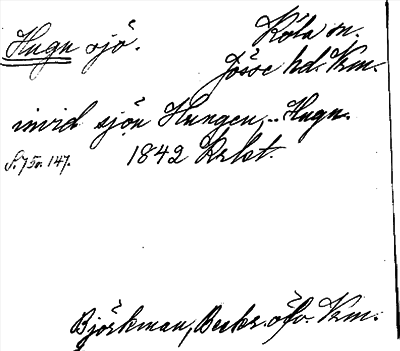 Hugn sjö.
Köla sn.
Jösse hd. Vrm.
invid sjön Hungen, - Hugn.
1842 Rskt.
Björkman, Beskr. öfv. Vrm.